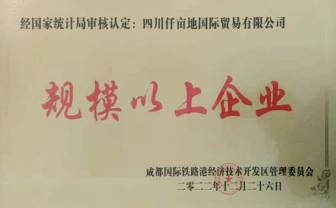 经国家统计局审核认定：四川仟亩地国际贸易有限公司
规模以上企业
成都国际铁路港经济技术开发区管理委员会
二零二三年十二月二十六日